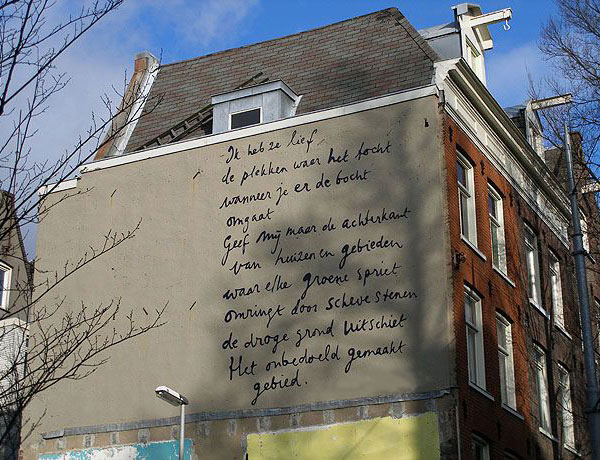 Ik heb ze lief
de plekken waar het tocht
wanneer je er de bocht
omgaat
Geef mij maar de achterkant
van huizen en gebieden
waar elke groene spriet
omringt door scheve stenen
de droge grond uitschiet
Het onbedoeld gemaakt
gebied.